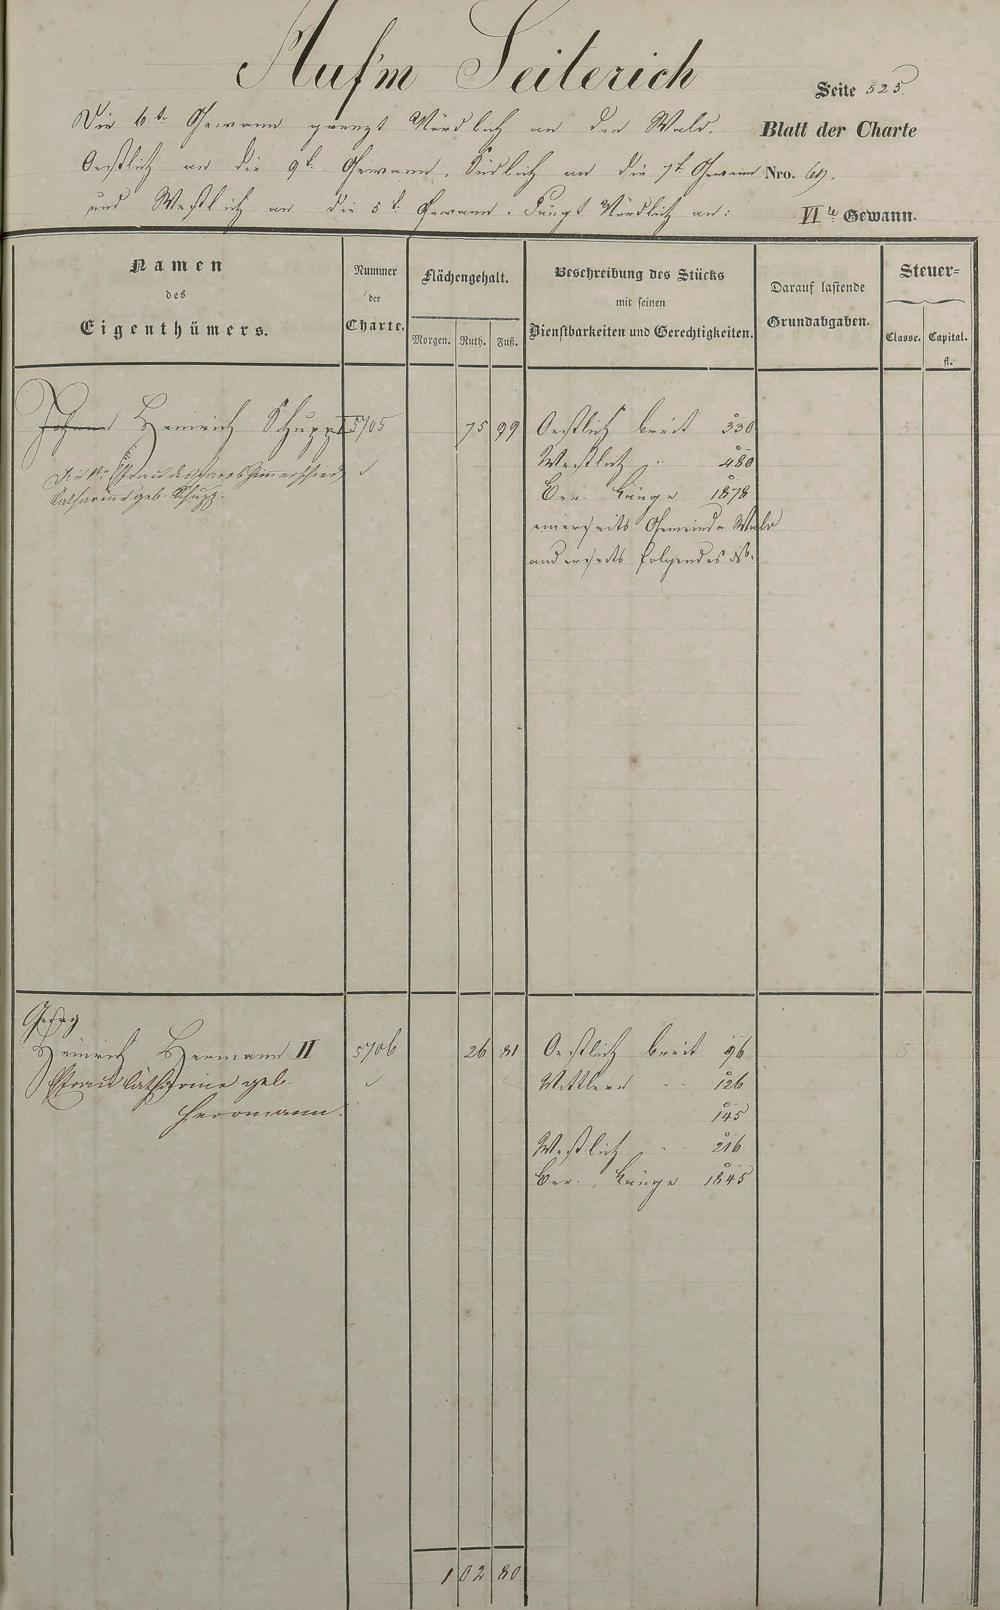 Auf'm Seiterich
Seite 525.
Die 6te Gewann grenzt Nördlich an den Wald,
Blatt der Charte
Oestlich an die 9te Gewann, Südlich an die 7te Gewann
Nro. 69.
und Westlich an die 5te Gewann. Fängt Nördlich an:
VIte Gewann.
Namen
des
Eigenthümers.
Nummer
der
Charte.
Flächengehalt.
Morgen. Ruth. Fuß.
Beschreibung des Stücks
mit seinen
Dienstbarkeiten und Gerechtigkeiten.
Darauf lastende
Grundabgaben.
Steuer=
Classe. Capital.
fl.
Johann Heinrich Schupp I 5705 75 99 Oestlich breit 330
Frau des Jacob Zimmerschied
Westlich " 480
Catharine geb. Schupp.
Länge 1878
einerseits Gemeinde Wald
anderseits folgendes
Georg
Heinrich Hermann II 5706 26 81 Oestlich breit 96
Frau Catharine geb.
Mittlere " 126
Herrmann.
145
Westlich " 216
Länge 1845
5
102 80